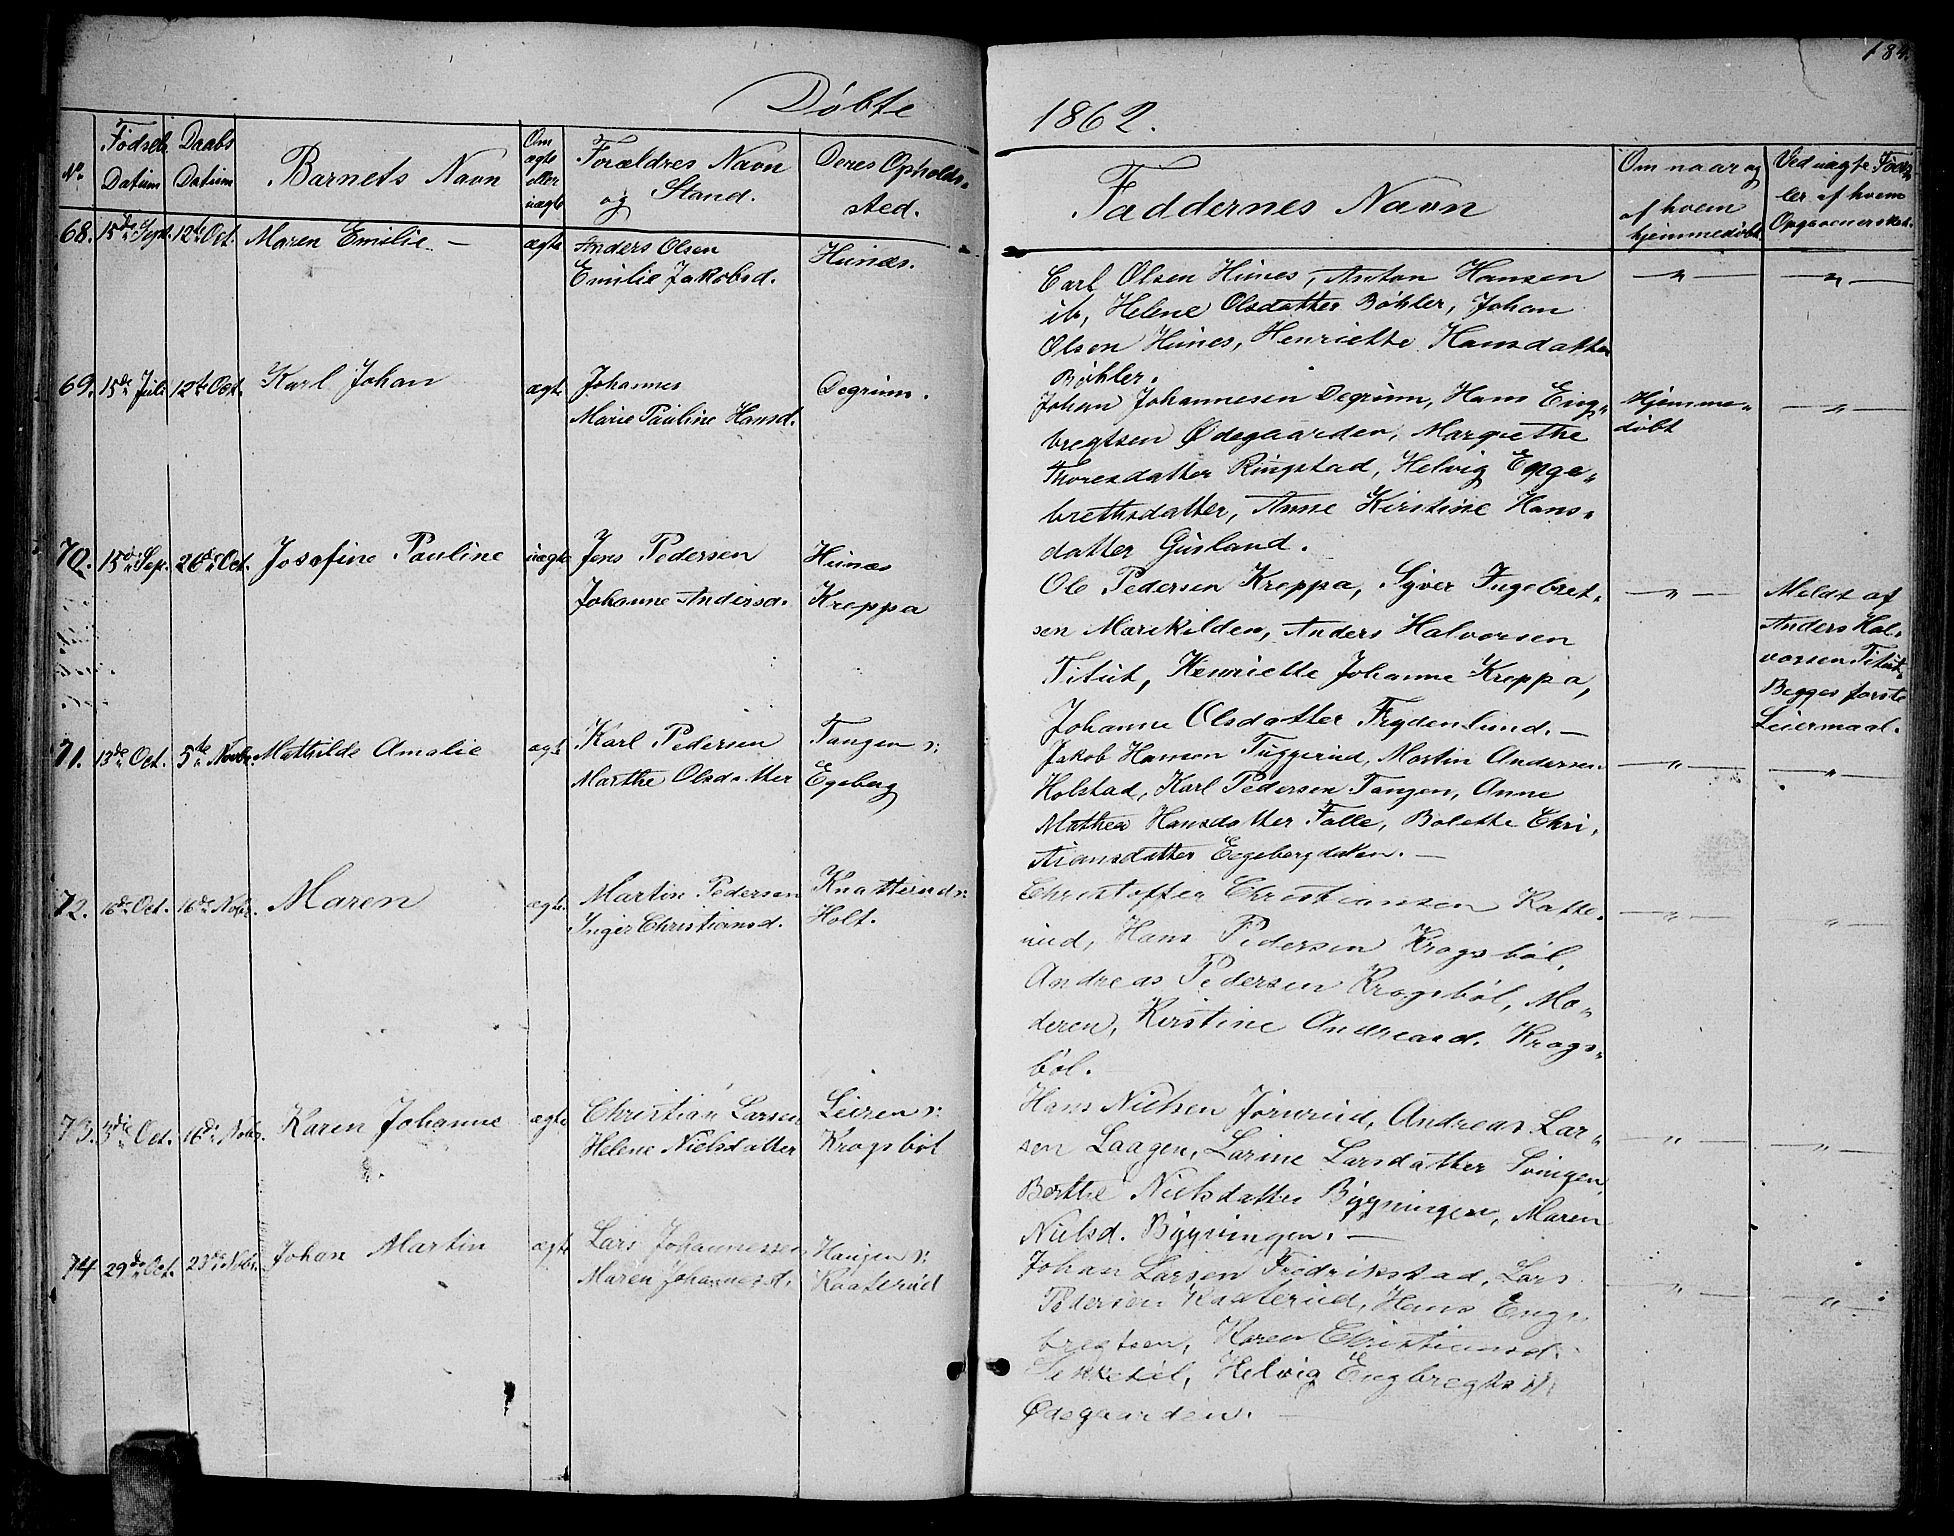 Døbte
1862.
184.
No.
Fødsels Datum
Daabs Datum
Barnets Navn
Om ægte eller uægte
Forældres Navn og Stand.
Deres Opholdssted.
Faddernes Navn
Om naar og af hvem hjemmedøbt.
Ved uægte
af hvem
68. 15de Sept. 12te Oct. Maren Emilie. — ægte Anders Olsen Hunæs.
Emilie Jakobsd.
Carl Olsen Hunes, Anton Hansen — " — — " —
ib, Helene Olsdatter Bøhler, Johan
Olsen Hunes, Henriette Hansdatter
Bøhler.
69. 15de Juli 12te Oct. Karl Johan ægte Johannes Degrum.
Marie Pauline Hansd.
Johan Johannesen Degrum, Hans Eng„ Hjemme„ — " —
bregtsen Ødegaarden, Margrethe døbt
Thoresdatter Ringstad, Helvig Enge„
brethsdatter, Anne Kirstine Hans„
datter Gusland.
70. 15de Sep. 26de Oct. Josefine Pauline uægte Jens Pedersen Hunæs
Johanne Andersd. Kreppa
Ole Pedersen Kreppa, Syver Ingebret„ — " — Meldt af
sen Marikilden, Anders Halvorsen Anders Hal„
Titut, Henriette Johanne Kreppa, vorsen Titut„
Johanne Olsdatter Frydenlund. — Begges første
Leiermaal.
71. 13de Oct. 5te Novbr. Mathilde Amalie ægte Karl Pedersen Tangen s:
Marthe Olsdatter Egeberg
Jakob Hanson Tuggerud, Martin Andersen — " — — " —
Holstad, Karl Pedersen Tangen, Anne
Mathea Hansdatter Falle, Bolette Chri„
stiansdatter Eegebergdalen. —
72. 16de Oct. 16de Nobr. Maren ægte Martin Pedersen Knatterud s:
Inger Christiansd. Holt.
Christoffer Christiansen Katte„ — " — " —
rud, Hans Pedersen Krogsbøl,
Andreas Pedersen Krogsbøl, Mo„
deren, Kirstine Andreasd. Krogs„
bøl.
73. 3die Oct. 16de Nobr. Karen Johanne ægte Christian Larsen Leiren s:
Helene Nielsdatter Krogsbøl
Hans Nielsen Jørnrud, Andreas Lar„ — " — — " —
sen Laagen, Larine Larsdatter Svingen,
Berthe Nielsdatter Bygningen, Maren
Nielsd. Bygningen. —
74 29de Oct. 23de Nobr. Johan Martin ægte Lars Johannessen Haugen s:
Maren Johannesd. Kaaterud
Johan Larsen Fredrikstad, Lars — " — — " —
Pedersen Kaaterud, Hans Eng„
bregtsen, Karen Christiansd.
Helvig Engbregtsd.
Ødegaarden. —